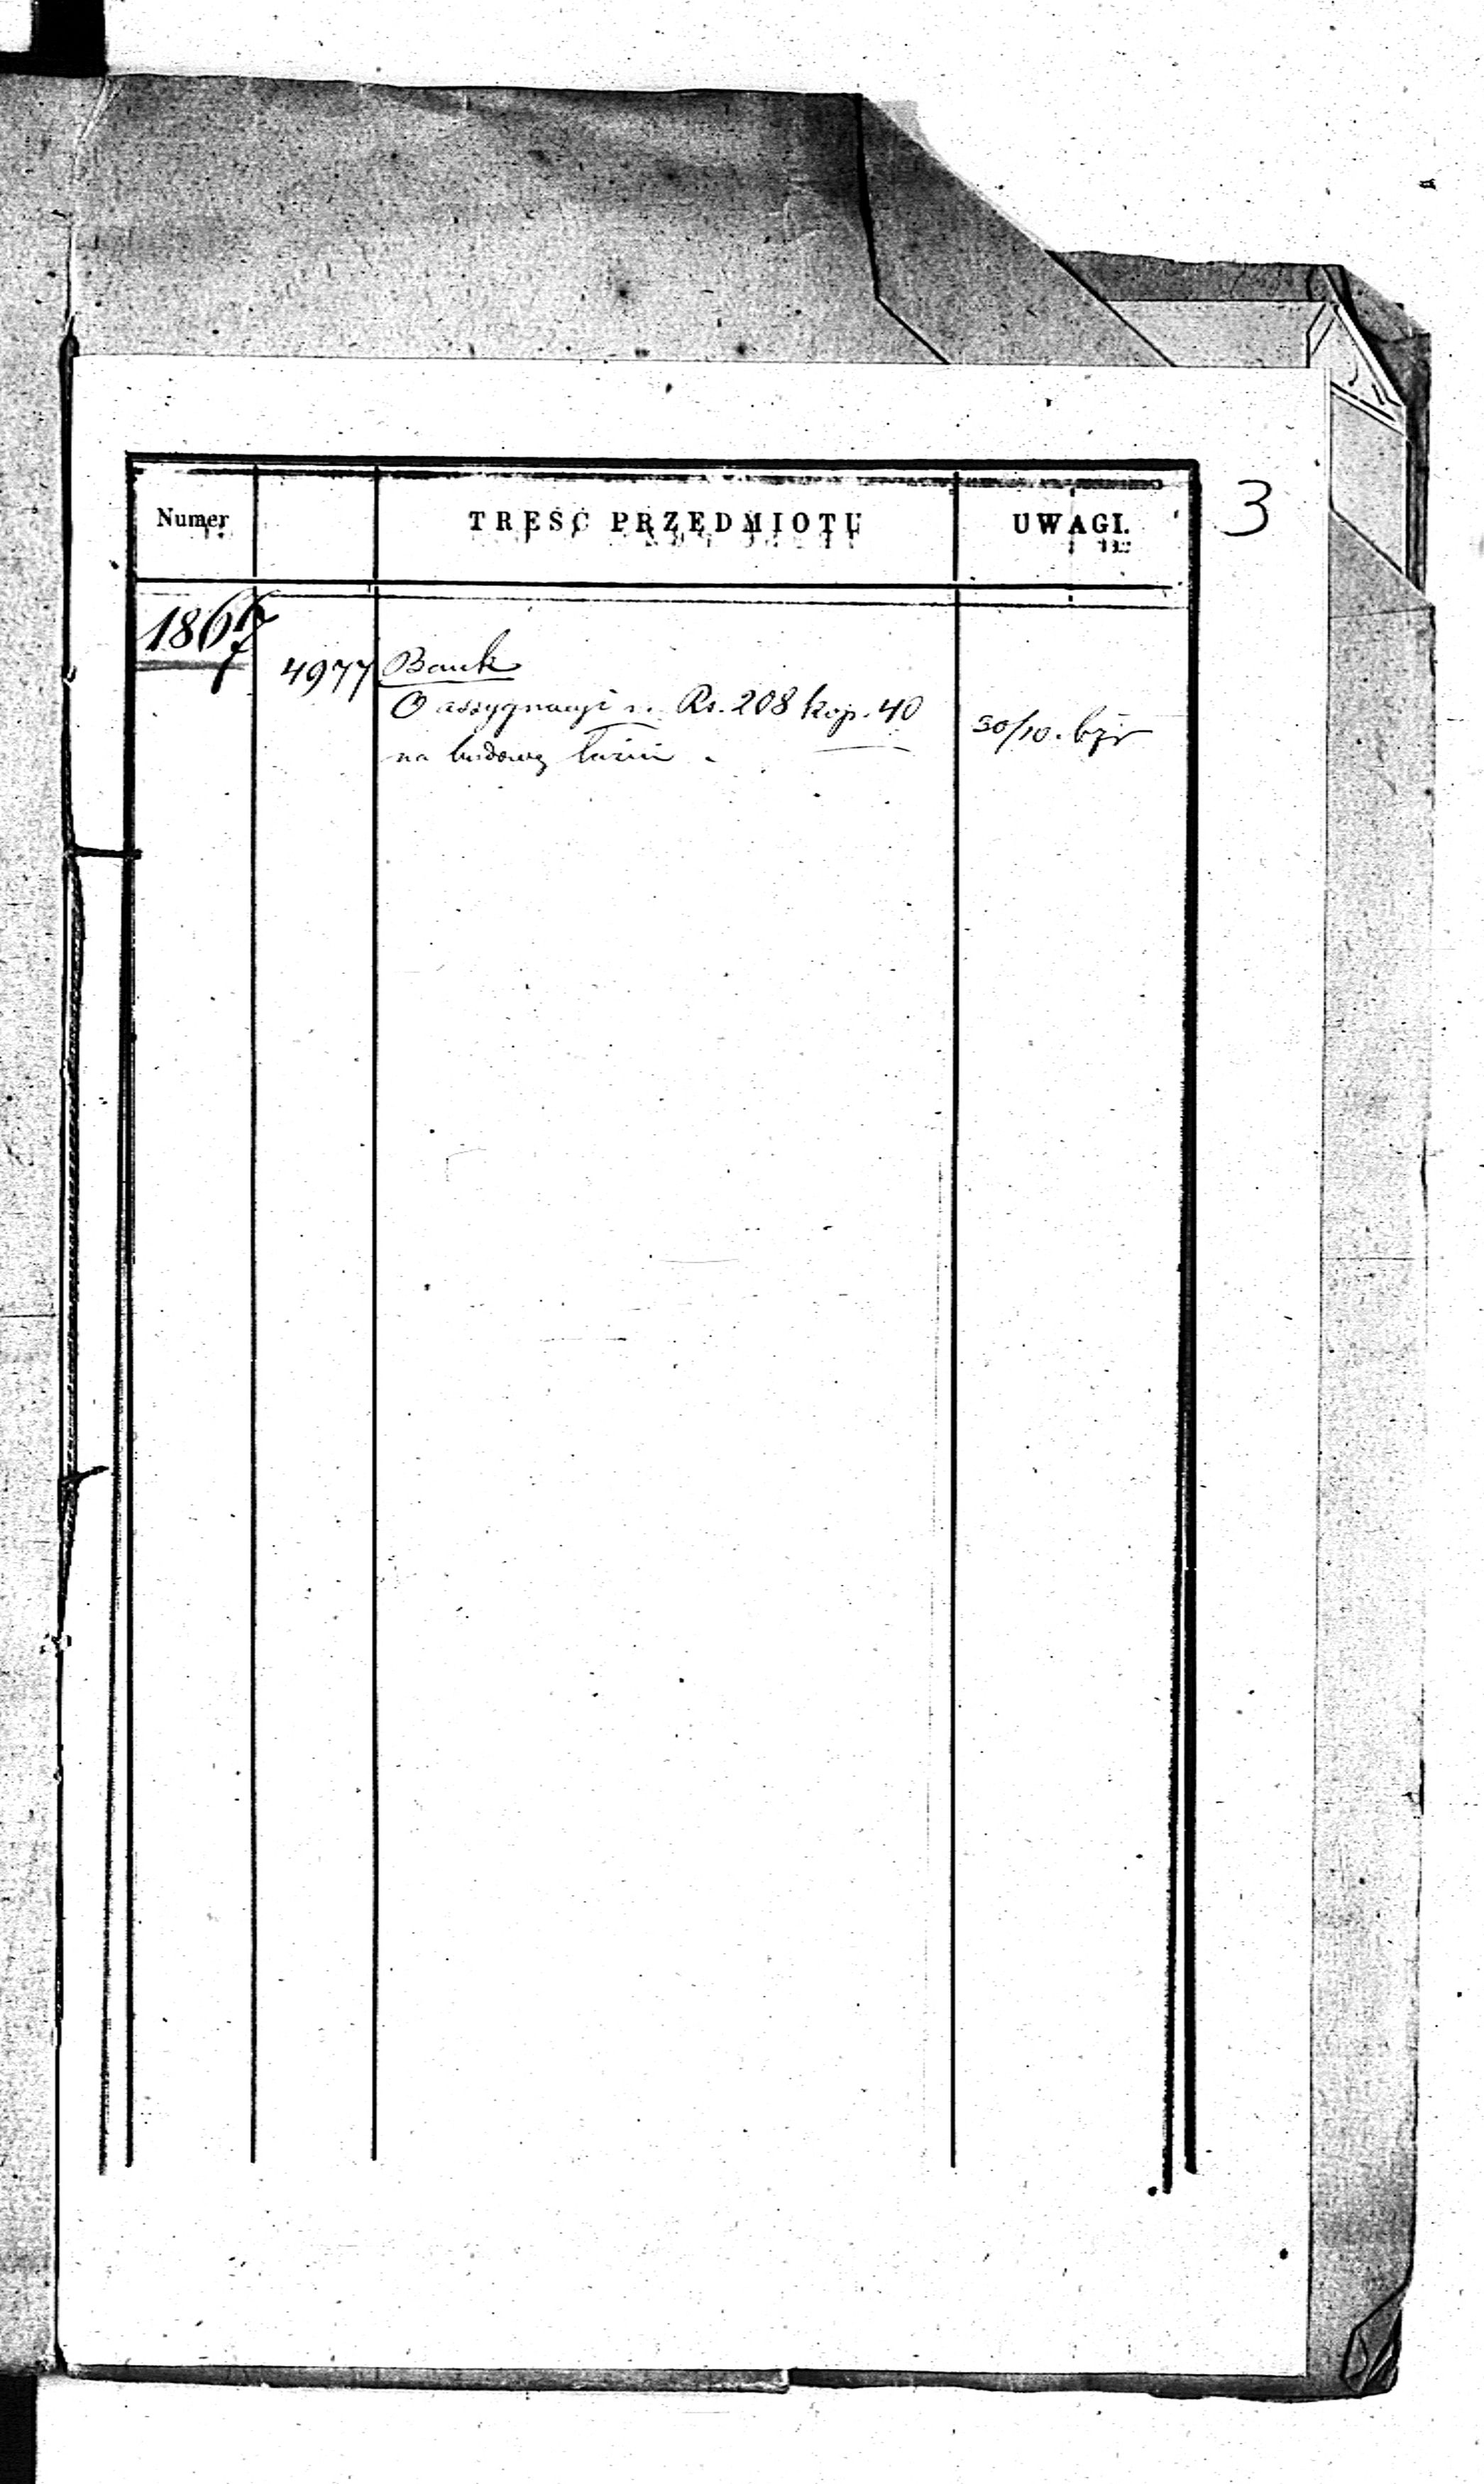 3
Numer TREŚĆ PRZEDMIOTU UWAGI.
1867
4977 Bank
O assygnacyi Rs. 208 kop. 40
na budowę łaźni 30/10.